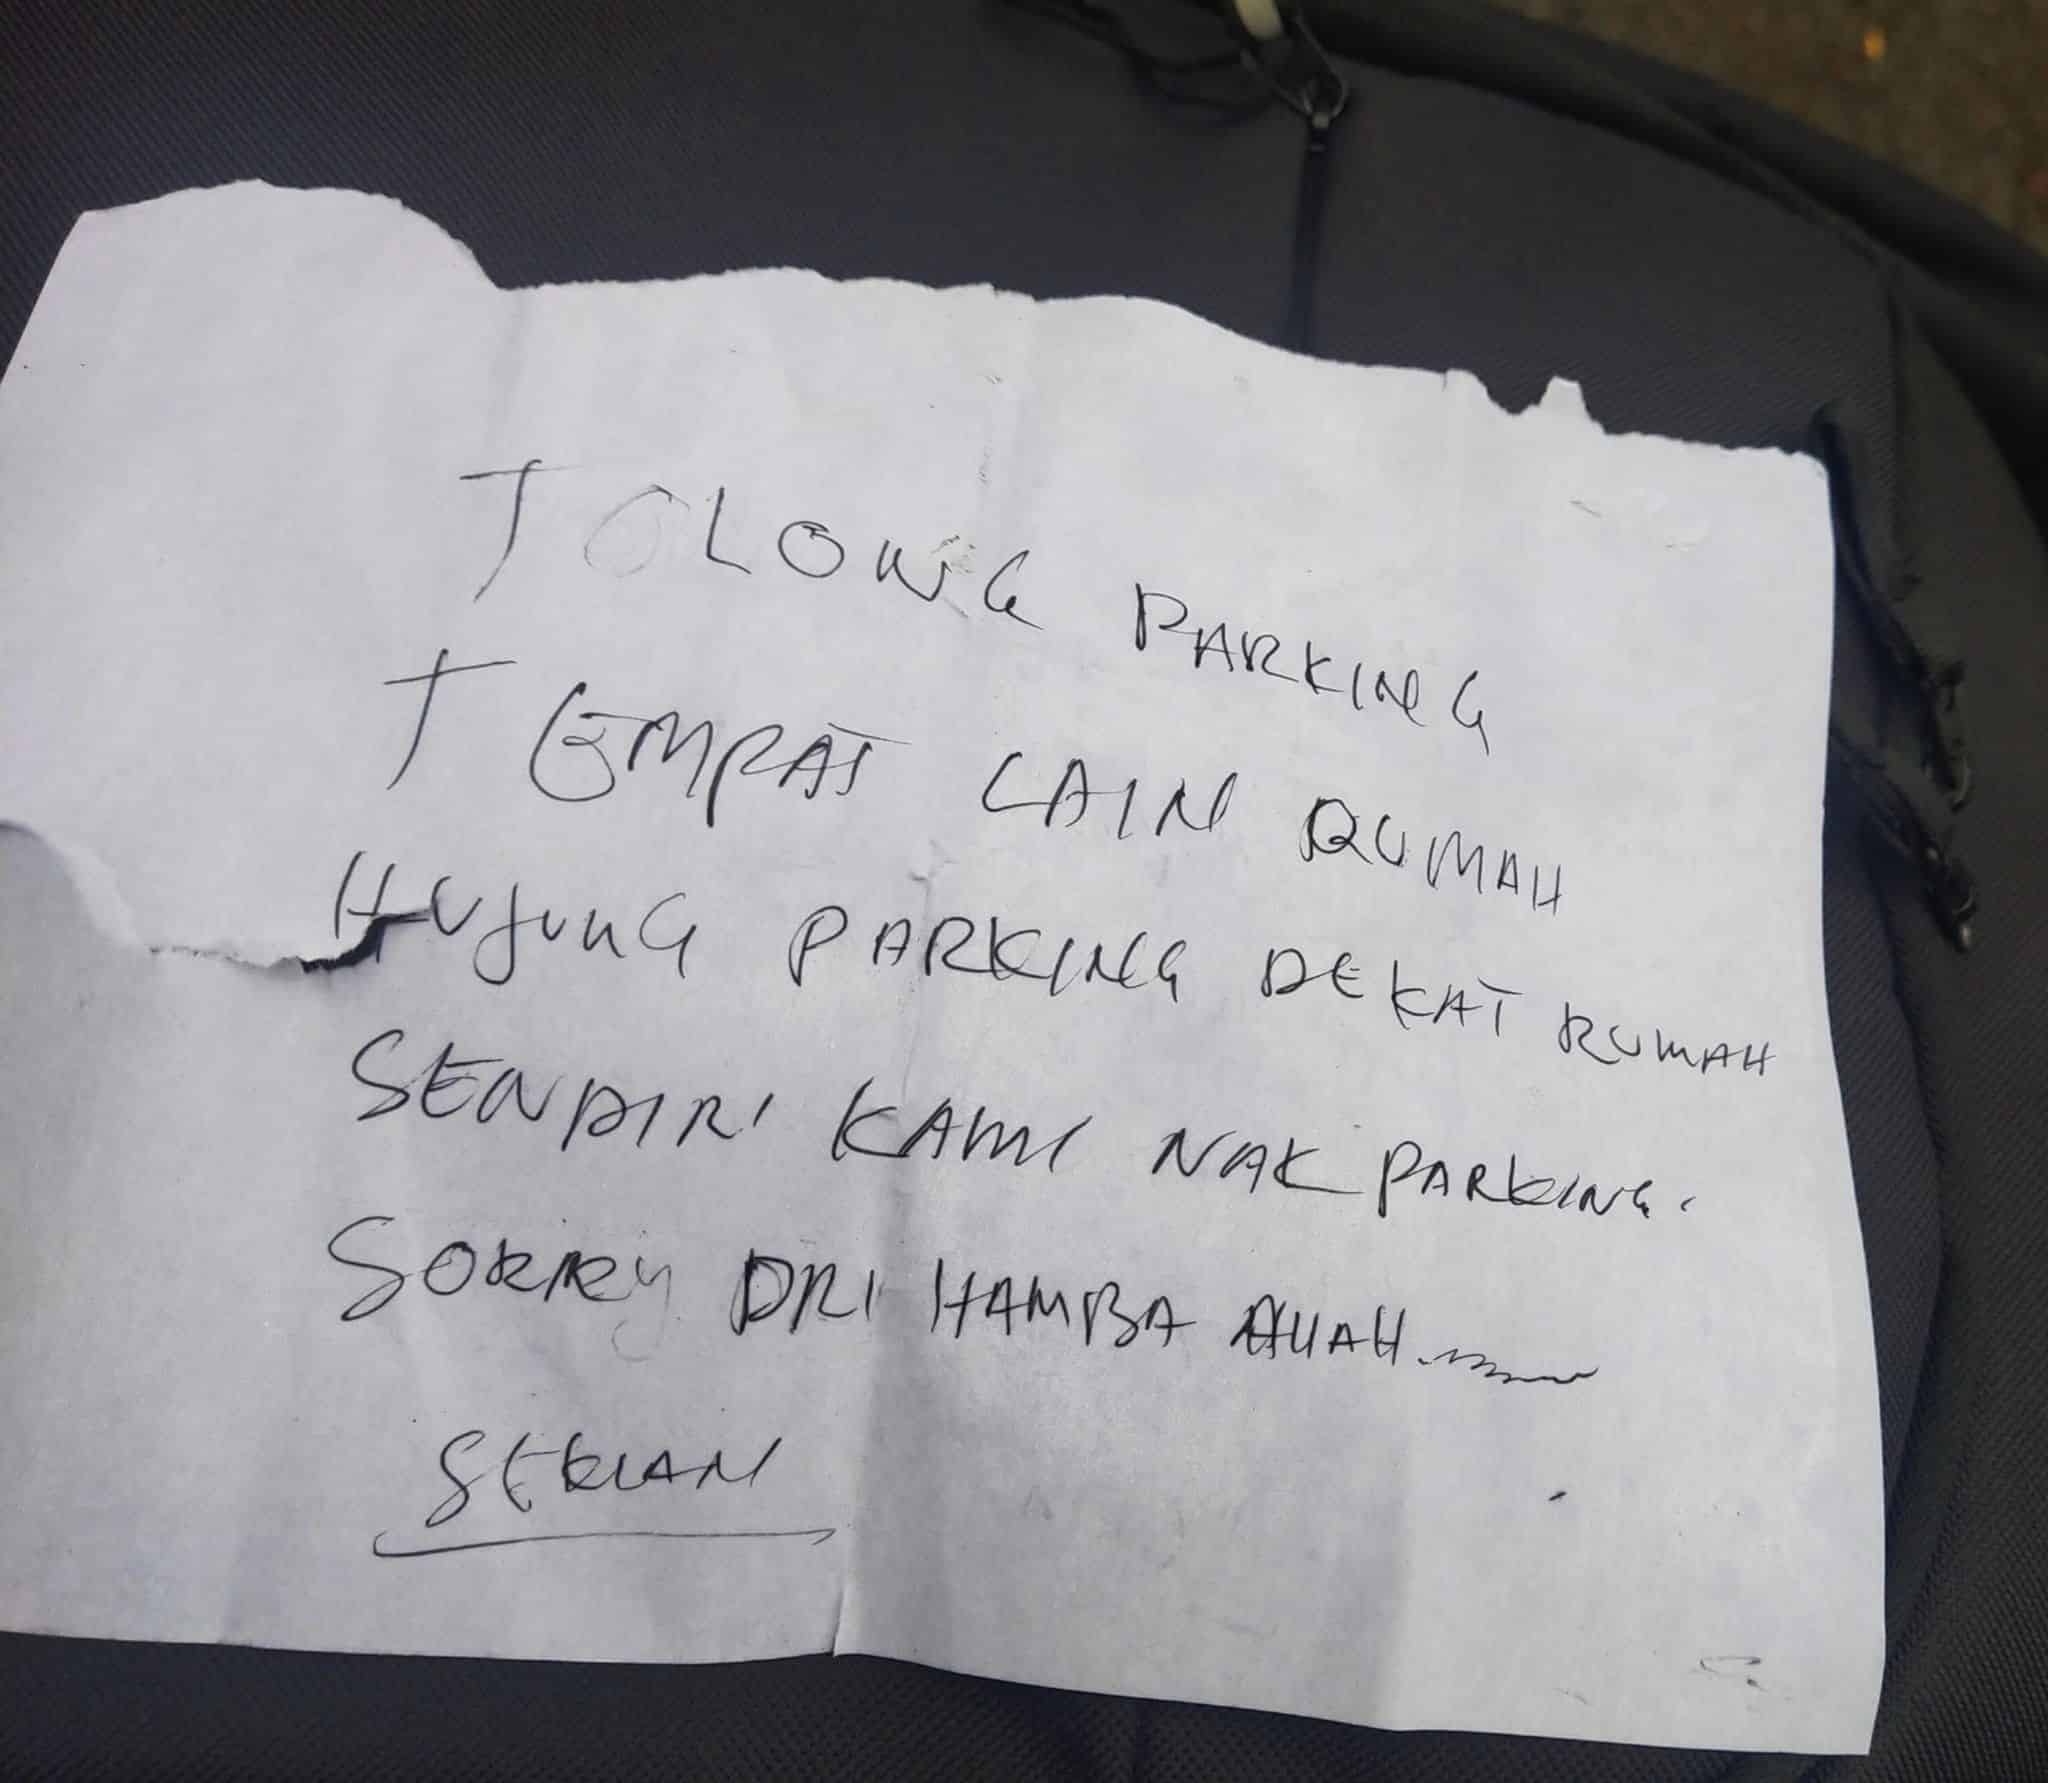 TOLONG PARKING
TEMPAT LAIN RUMAH
HUJUNG PARKING DEKAT RUMAH
SENDIRI KAMI NAK PARKING.
SORRY DRI HAMBA ALLAH
SEKIAN